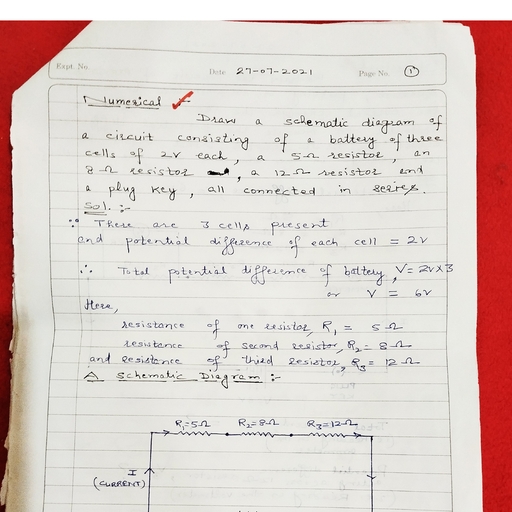 Expt. No. Date 27-07-2021 Page No. 1
Numerical :-
Draw a schematic diagram of
a circuit consisting of a battery of three
cells of 2V each, a 5Ω resistor, an
8Ω resistor, a 12Ω resistor and
a plug key, all connected in series.
Sol. :-
∵ There are 3 cells present
and potential difference of each cell = 2V
∴ Total potential difference of battery, V = 2V×3
or V = 6V
Here,
resistance of one resistor, R₁ = 5Ω
resistance of second resistor, R₂ = 8Ω
and resistance of third resistor, R₃ = 12Ω
A Schematic Diagram :-
R₁=5Ω R₂=8Ω R₃=12Ω
I
(CURRENT)